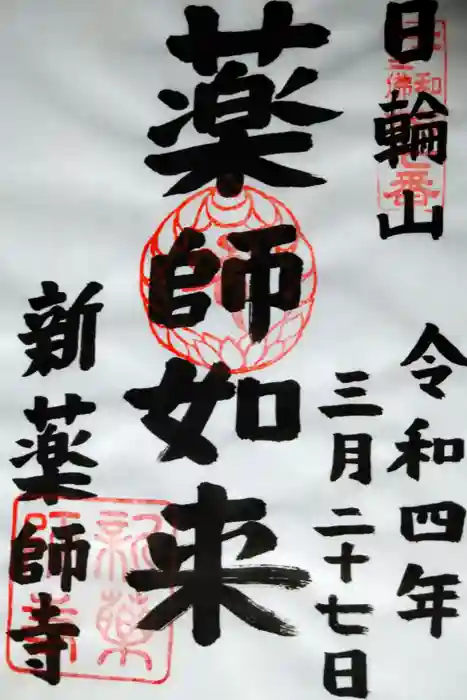 日輪山
令和四年
三月二十七日
薬師如来
新薬師寺